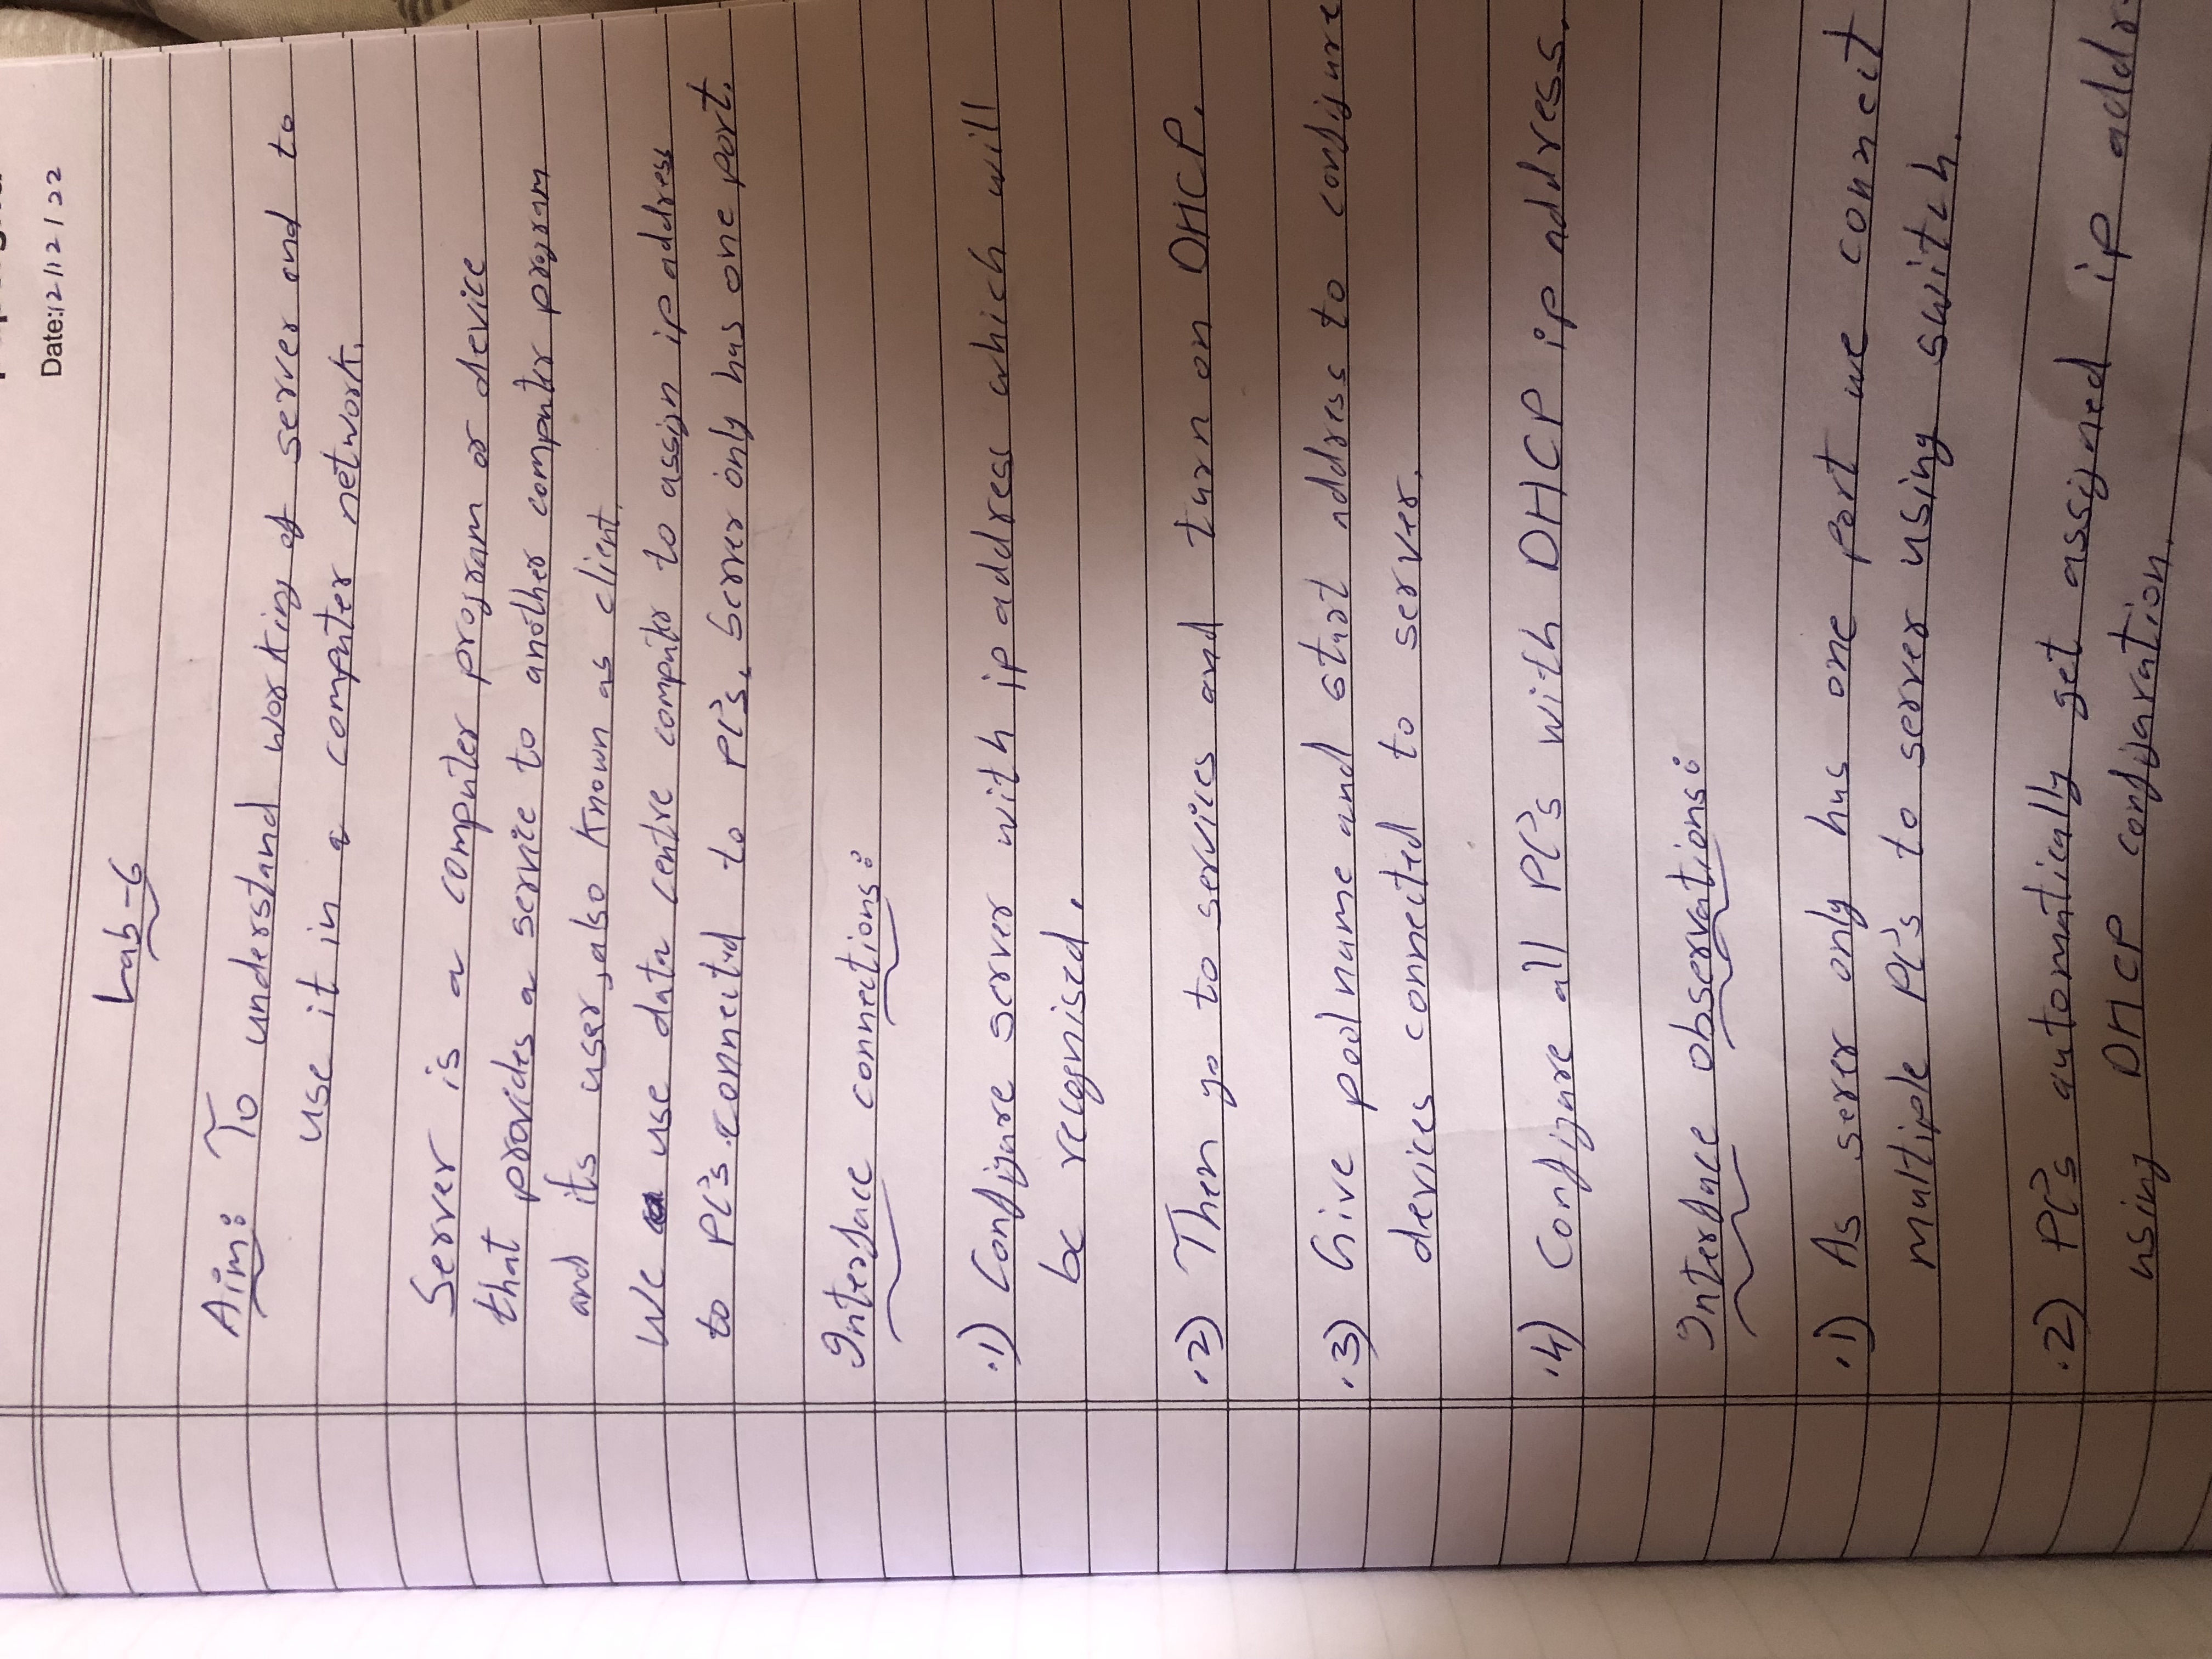 Date: 12/12/22
Lab-6
Aim: To understand working of server and to
use it in a computer network.
Server is a computer program or device
that provides a service to another computer program
and its user, also known as client.
We use data centre computer to assign ip address
to PC's connected to PC's. Server only has one port.
Interface connections:
.1) Configure server with ip address which will
be recognised.
.2) Then go to services and turn on DHCP.
.3) Give pool name and start address to configure
devices connected to server.
.4) Configure all PC's with DHCP ip address.
Interface observations:
.1) As serer only has one port we connect
multiple PC's to server using switch.
.2) PC's automatically get assigned ip addr
using DHCP configaration.